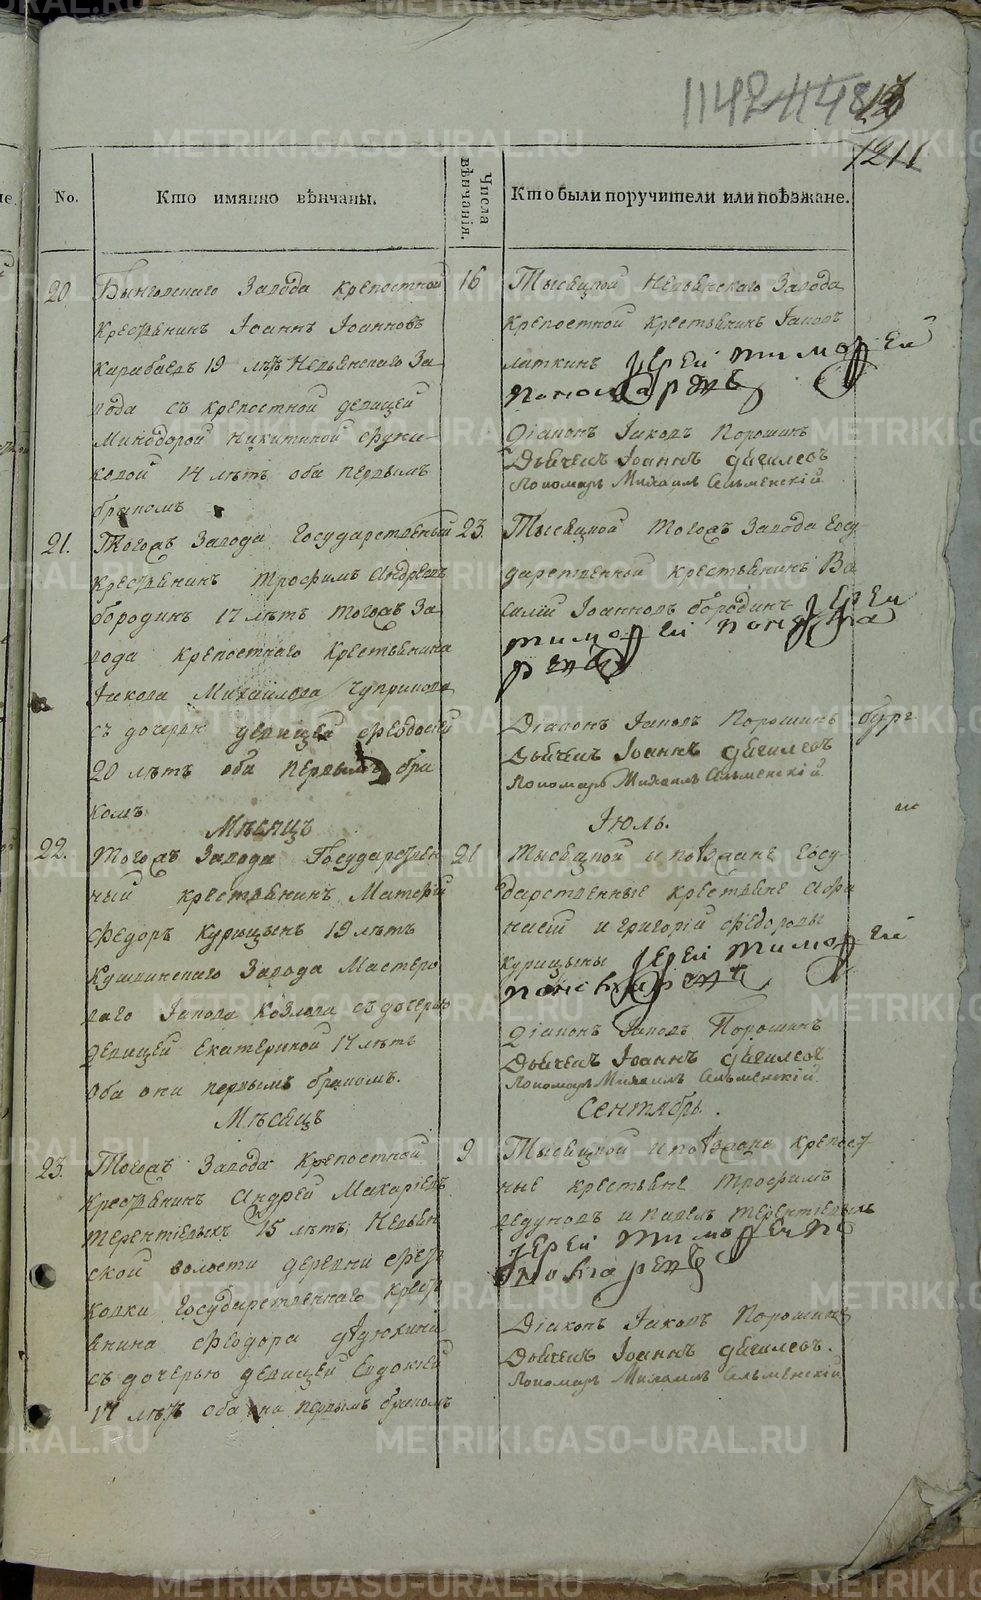 1211
No.
Кто имянно вѣнчаны.
Числа вѣнчанія.
Кто были поручители или поѣзжане.
20
Быньговскаго Завода крепостной
крестьянинъ Іоаннъ Іоанновъ
Карабаевъ 19 лѣтъ Невьянскаго За-
вода съ крепостной девицей
Минодорой Никитиной
14 лѣтъ оба первымъ
бракомъ
16
Тысяцкой Невьянскаго Завода
крепостной крестьянинъ Іаковъ
латкинъ Іерей Тимофей
Пономаревъ
Діаконъ Іаковъ Порошинъ
Дьячекъ Іоаннъ
Пономарь Михаилъ
21.
Тогожъ Завода Государственный
крестьянинъ Трофимъ Андреевъ
бородинъ 17 лѣтъ тогожъ За
вода крепостнаго крестьянина
Іакова Михайлова Чупракова
съ дочерью девицей Феодосіей
20 лѣтъ оба первымъ бра
комъ
23.
Тысяцкой тогожъ Завода Госу
дарственной крестьянинъ Ва
силій Іоанновъ бородинъ Іерей
Тимофей Понома
ревъ
Діаконъ Іаковъ Порошинъ
Дьячекъ Іоаннъ
Пономарь Михаилъ
Мѣсяцъ
Іюль.
22.
Тогожъ Завода Государствен
ный крестьянинъ Матфей
Федоръ Курицынъ 19 лѣтъ
Кушвинскаго Завода Мастеро
ваго Іакова Козлова съ дочерью
девицей Екатериной 17 лѣтъ
Оба они первымъ бракомъ.
21
Тысяцкой и поѣзжане Госу
дарственные крестьяне Афа
насій и Григорій Федоровы
Курицыны Іерей Тимофей
Пономаревъ
Діаконъ Іаковъ Порошинъ
Дьячекъ Іоаннъ
Пономарь Михаилъ
Мѣсяцъ
Сентябрь.
23.
Тогожъ Завода крепостной
крестьянинъ Андрей Макаріевъ
Терентіевыхъ 15 лѣтъ, Невьян
ской волости деревни
Государственнаго крест
янина Феодора
съ дочерью девицей Евдокіей
17 лѣтъ оба они первымъ бракомъ
9
Тысяцкой и поѣзжане крепост
ные крестьяне Трофимъ
и Павелъ Терентіевыхъ
Іерей Тимофей По
номаревъ
Діаконъ Іаковъ Порошинъ
Дьячекъ Іоаннъ
Пономарь Михаилъ
METRIKI.GASO-URAL.RU